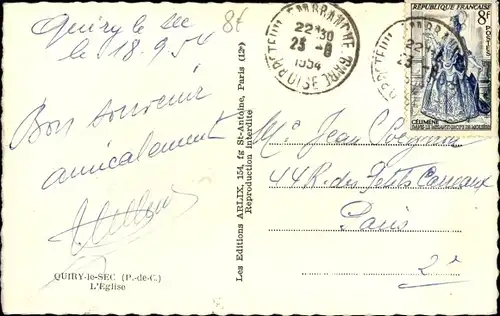 Quiry le Sec
le 18.9.54
Bon souvenir
amicalement
QUIRY-le-SEC (P.-de-C.)
L'Eglise
Les Editions ARLIX, 154, fg St-Antoine, Paris (12e)
Reproduction Interdite
8f
22 30
1954
OISE
RÉPUBLIQUE FRANÇAISE
8F
POSTES
CÉLIMÈNE
DANS LE MISANTHROPE DE MOLIÈRE
Mr Jean
44 R. des Petits Carreaux
Paris
2e